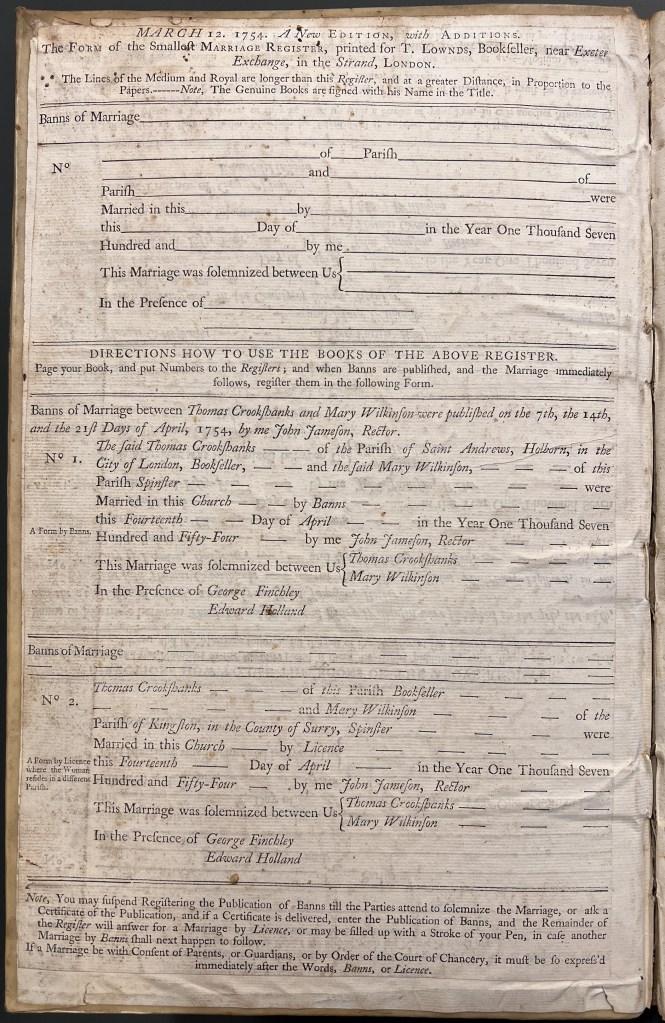 MARCH 12. 1754. A New Edition, with Additions.
The Form of the Smallest Marriage Register, printed for T. Lownds, Bookſeller, near Exeter
Exchange, in the Strand, London.
The Lines of the Medium and Royal are longer than this Regiſter, and at a greater Diſtance, in Proportion to the
Papers.------Note, The Genuine Books are ſigned with his Name in the Title.
Banns of Marriage
of Pariſh
No
and of
Pariſh were
Married in this by
this Day of in the Year One Thouſand Seven
Hundred and by me
This Marriage was ſolemnized between Us{
In the Preſence of
DIRECTIONS HOW TO USE THE BOOKS OF THE ABOVE REGISTER.
Page your Book, and put Numbers to the Regiſters; and when Banns are publiſhed, and the Marriage immediately
follows, regiſter them in the following Form.
Banns of Marriage between Thomas Crookſhanks and Mary Wilkinſon were publiſhed on the 7th, the 14th,
and the 21ſt Days of April, 1754, by me John Jameſon, Rector.
No 1. The ſaid Thomas Crookſhanks — — of the Pariſh of Saint Andrews, Holborn, in the
City of London, Bookſeller, — — and the ſaid Mary Wilkinſon, — — — of this
Pariſh Spinſter — — — — — — — — — were
Married in this Church — — by Banns — — — — — —
this Fourteenth — — Day of April — — in the Year One Thouſand Seven
A Form by Banns. Hundred and Fifty-Four — — by me John Jameſon, Rector — —
This Marriage was ſolemnized between Us{ Thomas Crookſhanks — — —
Mary Wilkinſon — — — —
In the Preſence of George Finchley
Edward Holland
Banns of Marriage — — — — — — — —
No 2. Thomas Crookſhanks — — — of this Pariſh Bookſeller — — — —
— — and Mary Wilkinſon — — — of the
Pariſh of Kingſton, in the County of Surry, Spinſter — — — — were
Married in this Church — — by Licence — — — — —
A Form by Licence where the Woman reſides in a different Pariſh. this Fourteenth — — Day of April — — in the Year One Thouſand Seven
Hundred and Fifty-Four — by me John Jameſon, Rector — — —
This Marriage was ſolemnized between Us{ Thomas Crookſhanks — — — —
Mary Wilkinſon — — — —
In the Preſence of George Finchley
Edward Holland
Note, You may ſuſpend Regiſtering the Publication of Banns till the Parties attend to ſolemnize the Marriage, or aſk a
Certificate of the Publication, and if a Certificate is delivered, enter the Publication of Banns, and the Remainder of
the Regiſter will anſwer for a Marriage by Licence, or may be filled up with a Stroke of your Pen, in caſe another
Marriage by Banns ſhall next happen to follow.
If a Marriage be with Conſent of Parents, or Guardians, or by Order of the Court of Chancery, it muſt be ſo expreſs'd
immediately after the Words, Banns, or Licence.